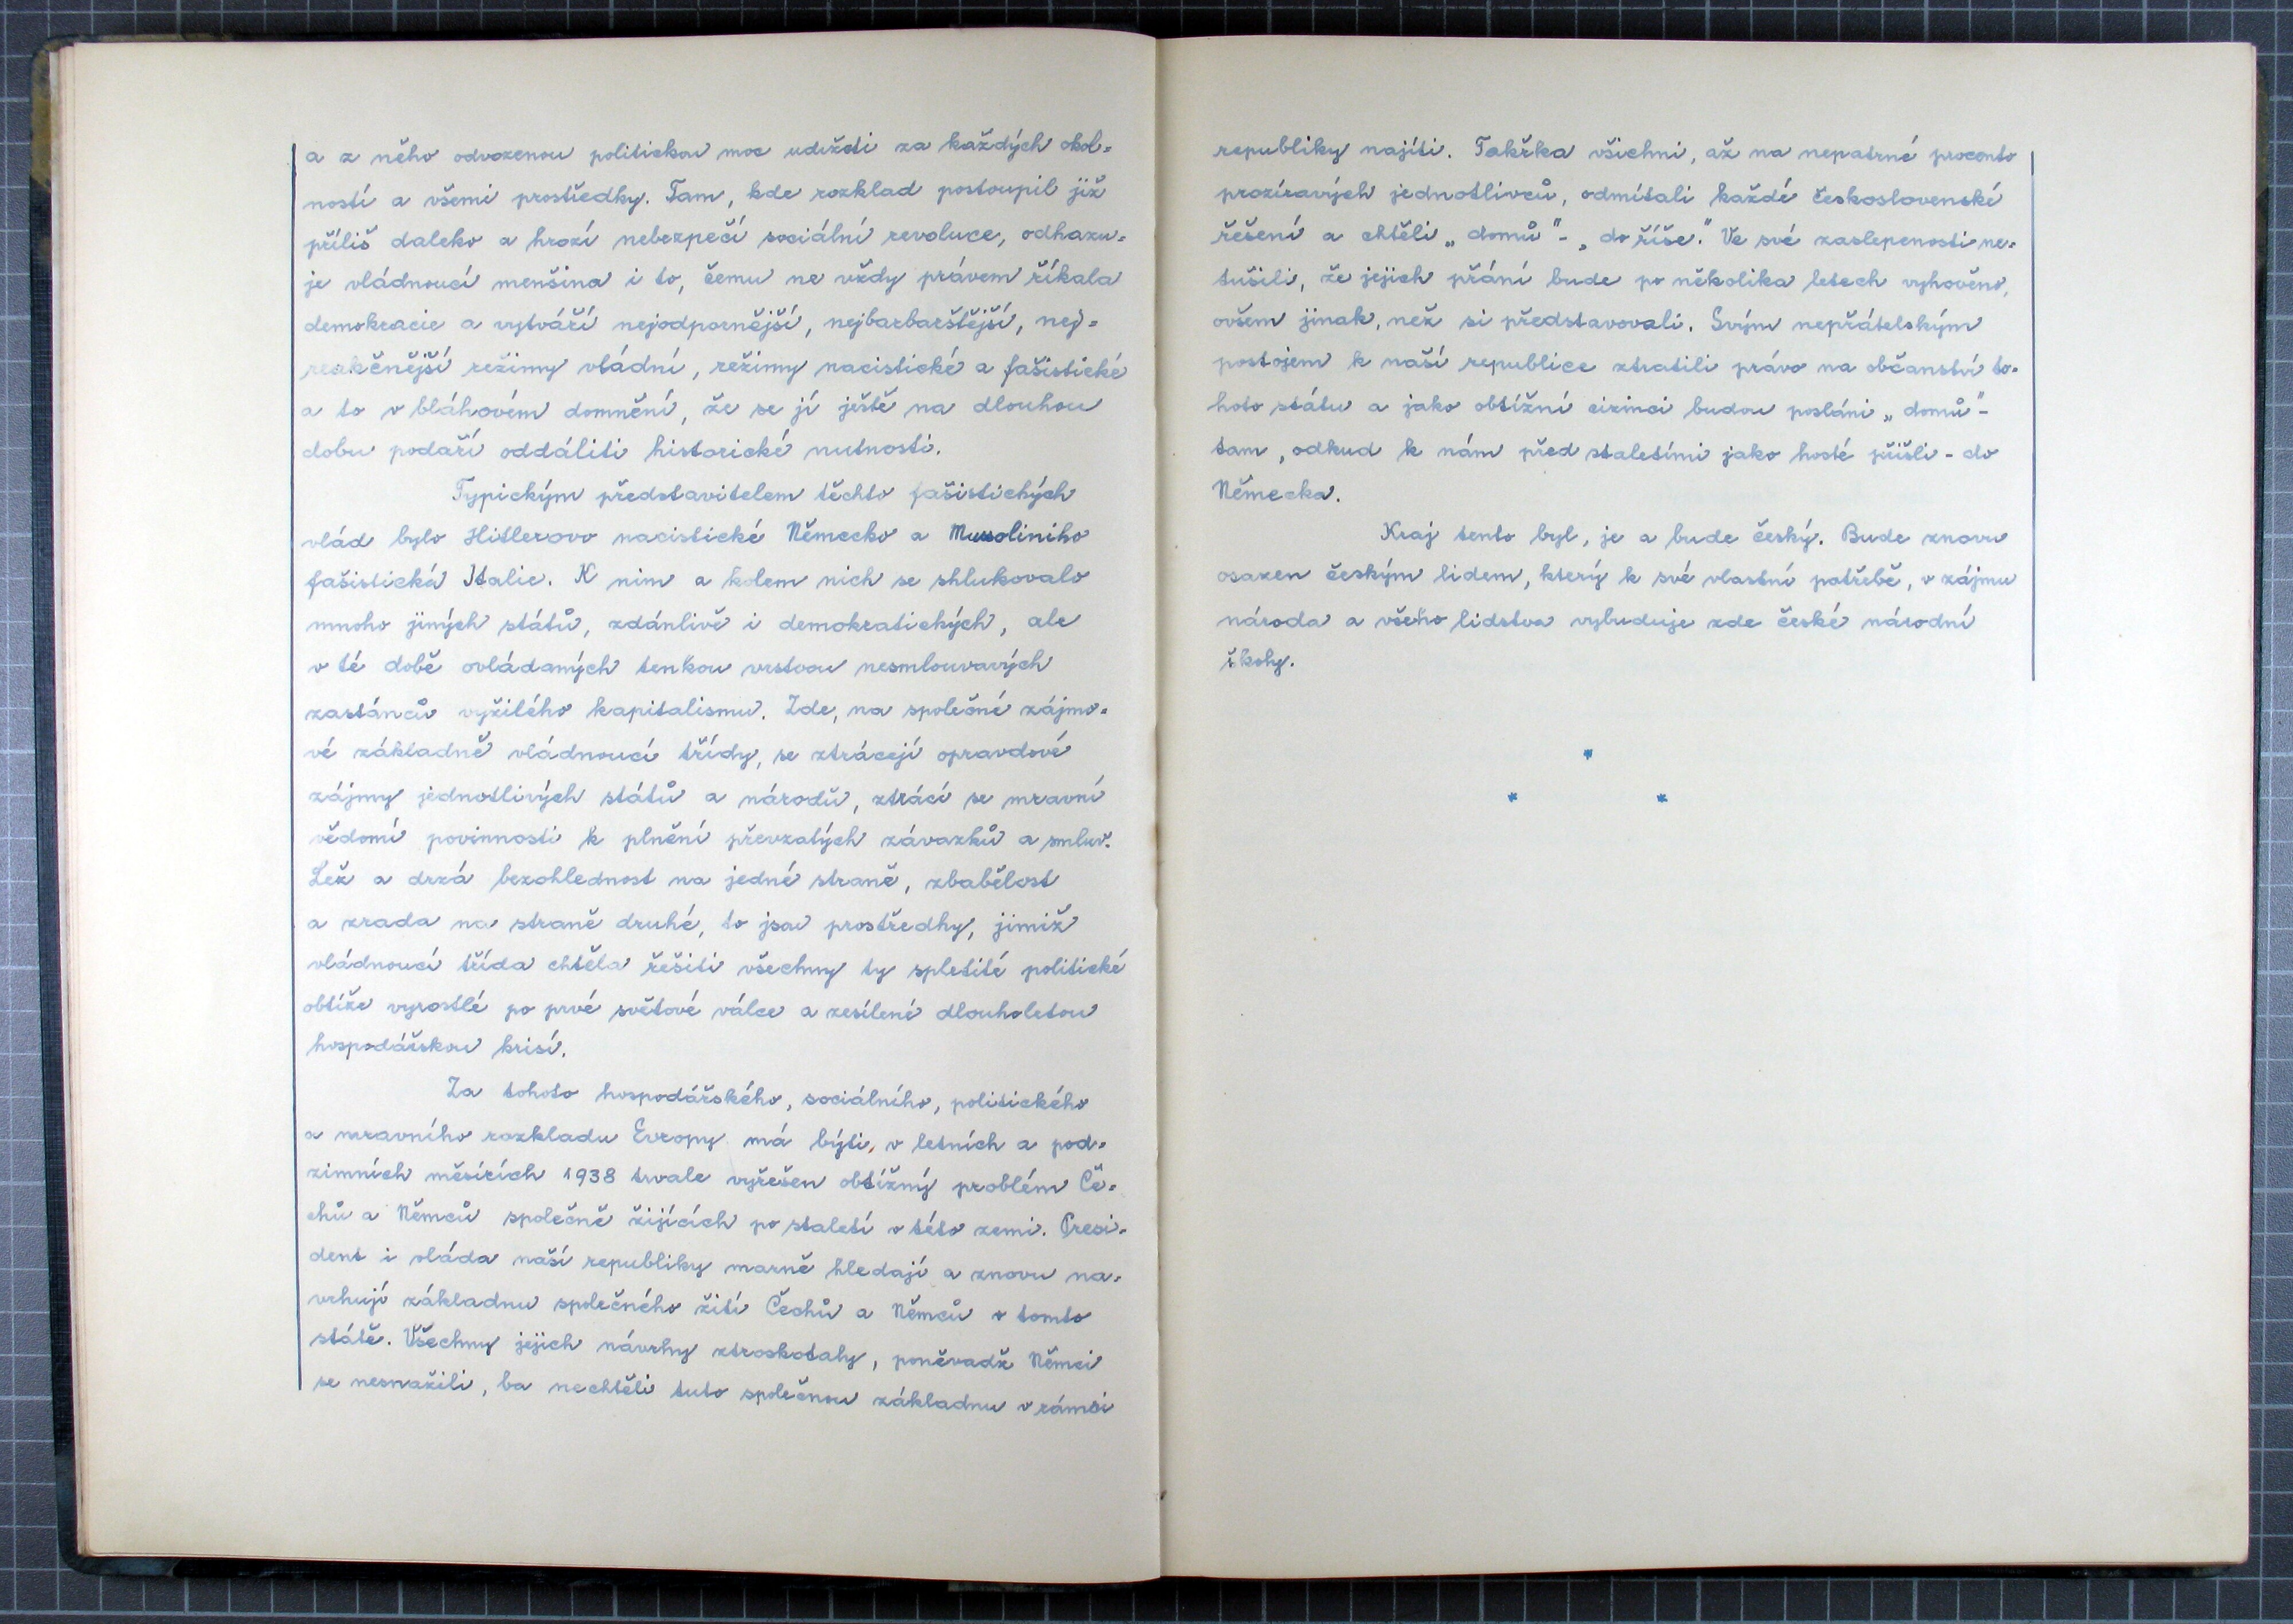 a z něho odvozenou politickou moc udržeti za každých okol=
ností a všemi prostředky. Tam, kde rozklad postoupil již
příliš daleko a hrozí nebezpečí sociální revoluce, odhazu=
je vládnoucí menšina i to, čemu ne vždy právem říkala
demokracie a vytváří nejodpornější, nejbarbarštější, nej=
reakčnější režimy vládní, režimy nacistické a fašistické
a to v bláhovém domnění, že se jí ještě na dlouhou
dobu podaří oddáliti historické nutnosti.
Typickým představitelem těchto fašistických
vlád bylo Hitlerovo nacistické Německo a Mussoliniho
fašistická Italie. K nim a kolem nich se shlukovalo
mnoho jiných států, zdánlivě i demokratických, ale
v té době ovládaných tenkou vrstvou nesmlouvavých
zastánců vyžilého kapitalismu. Zde, na společné zájmo=
vé základně vládnoucí třídy, se ztrácejí opravdové
zájmy jednotlivých států a národů, ztrácí se mravní
vědomí povinnosti k plnění převzatých závazků a smluv.
Lež a drzá bezohlednost na jedné straně, zbabělost
a zrada na straně druhé, to jsou prostředky, jimiž
vládnoucí třída chtěla řešiti všechny ty spletité politické
obtíže vyrostlé po prvé světové válce a zesílené dlouholetou
hospodářskou krisí.
Za tohoto hospodářského, sociálního, politického
a mravního rozkladu Evropy má býti, v letních a pod=
zimních měsících 1938 trvale vyřešen obtížný problém Če=
chů a Němců společně žijících po staletí v této zemi. Presi=
dent i vláda naší republiky marně hledají a znovu na=
vrhují základnu společného žití Čechů a Němců v tomto
státě. Všechny jejich návrhy ztroskotaly, poněvadž Němci
se nesnažili, ba nechtěli tuto společnou základnu v rámci
republiky najíti. Takřka všichni, až na nepatrné procento
prozíravých jednotlivců, odmítali každé československé
řešení a chtěli „domů" - „do říše." Ve své zaslepenosti ne=
tušili, že jejich přání bude po několika letech vyhověno,
ovšem jinak, než si představovali. Svým nepřátelským
postojem k naší republice ztratili právo na občanství to=
hoto státu a jako obtížní cizinci budou posláni „domů" -
tam, odkud k nám před staletími jako hosté přišli - do
Německa.
Kraj tento byl, je a bude český. Bude znovu
osazen českým lidem, který k své vlastní potřebě, v zájmu
národa a všeho lidstva vybuduje zde české národní
školy.
*
* *